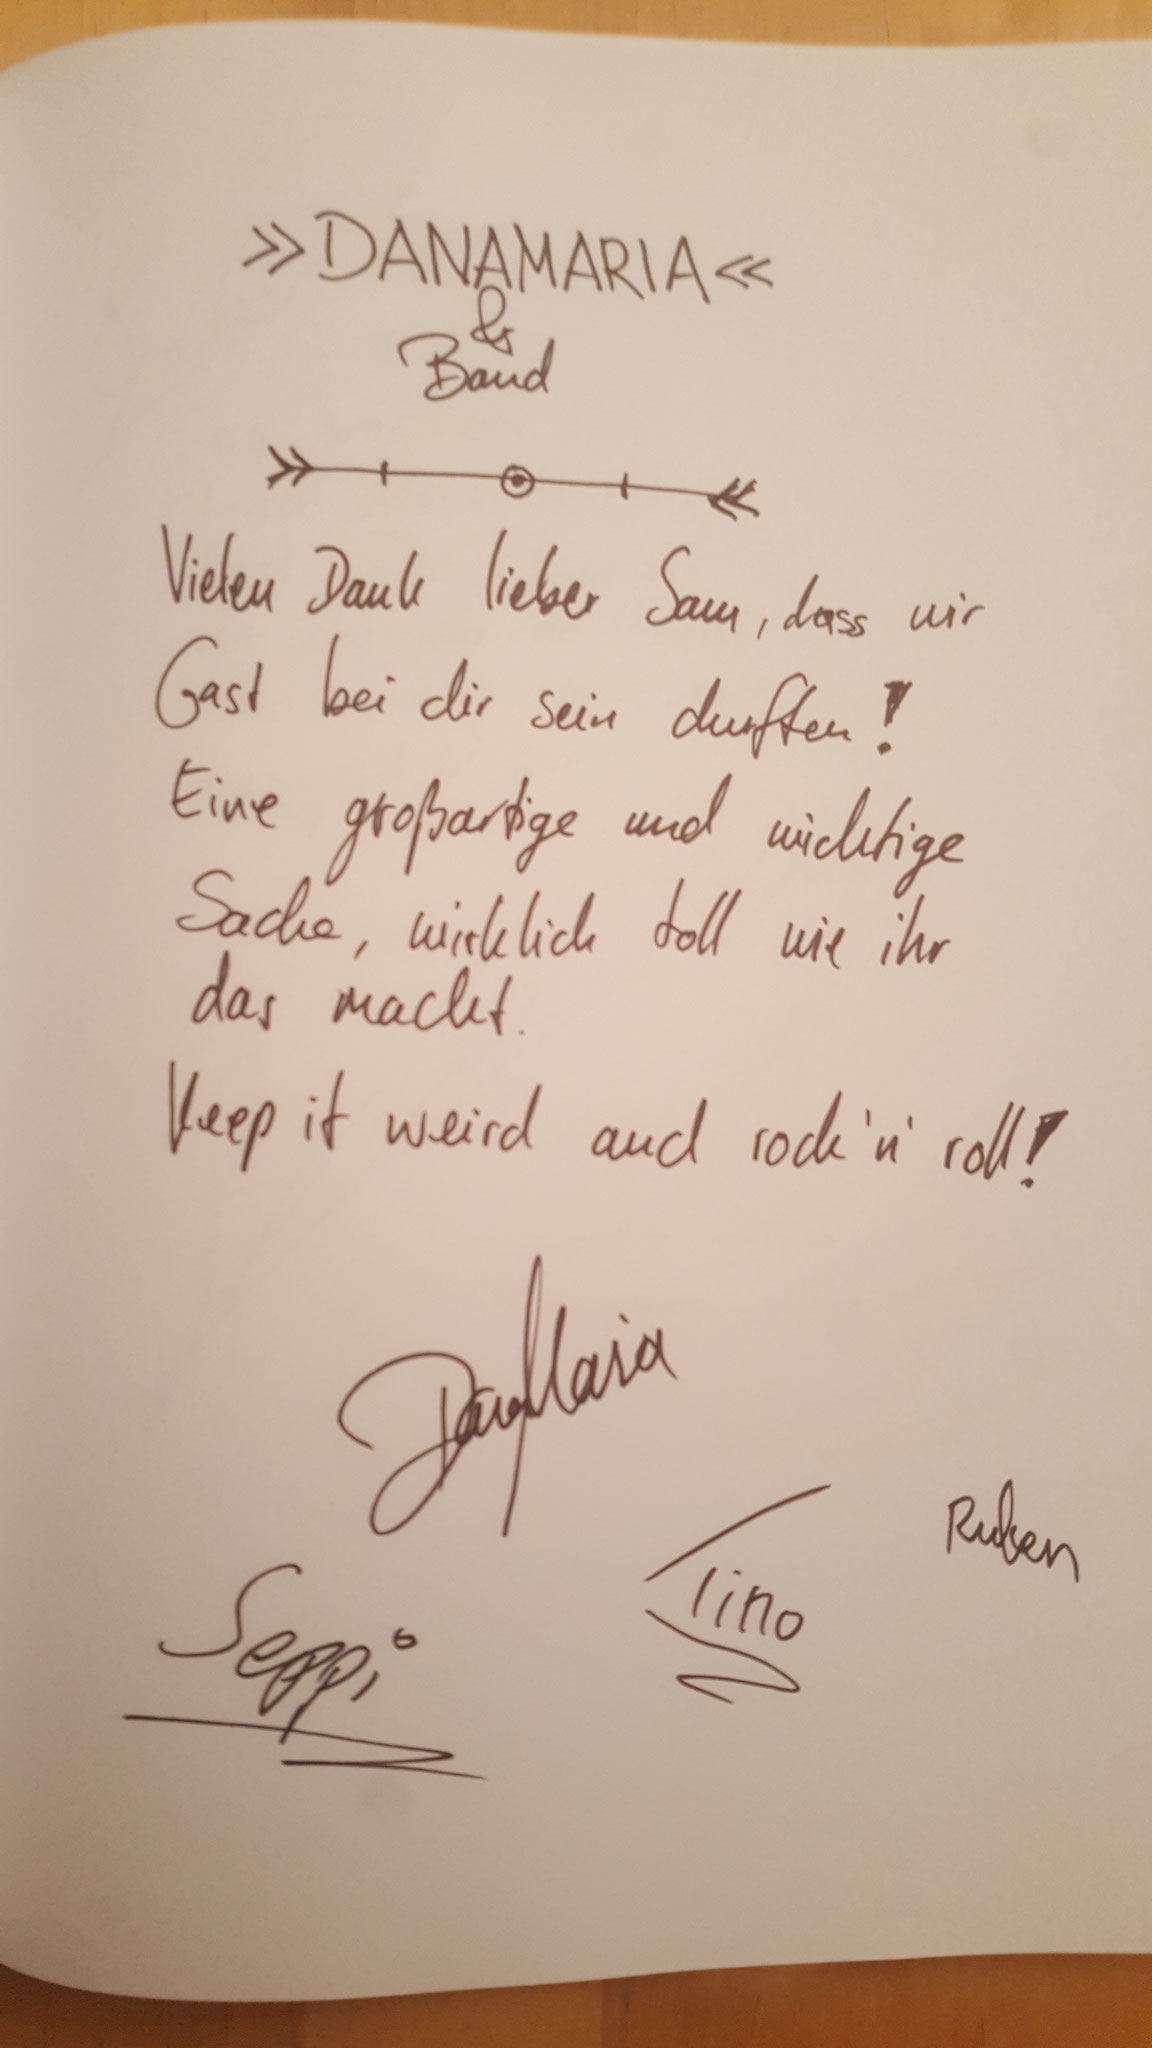 »DANAMARIA«
&
Band
Vielen Dank lieber Sam, dass wir
Gast bei dir sein durften!
Eine großartige und wichtige
Sache, wirklich toll wie ihr
das macht.
Keep it weird and rock 'n' roll!
DanaMaria
Ruben
Tino
Seppi